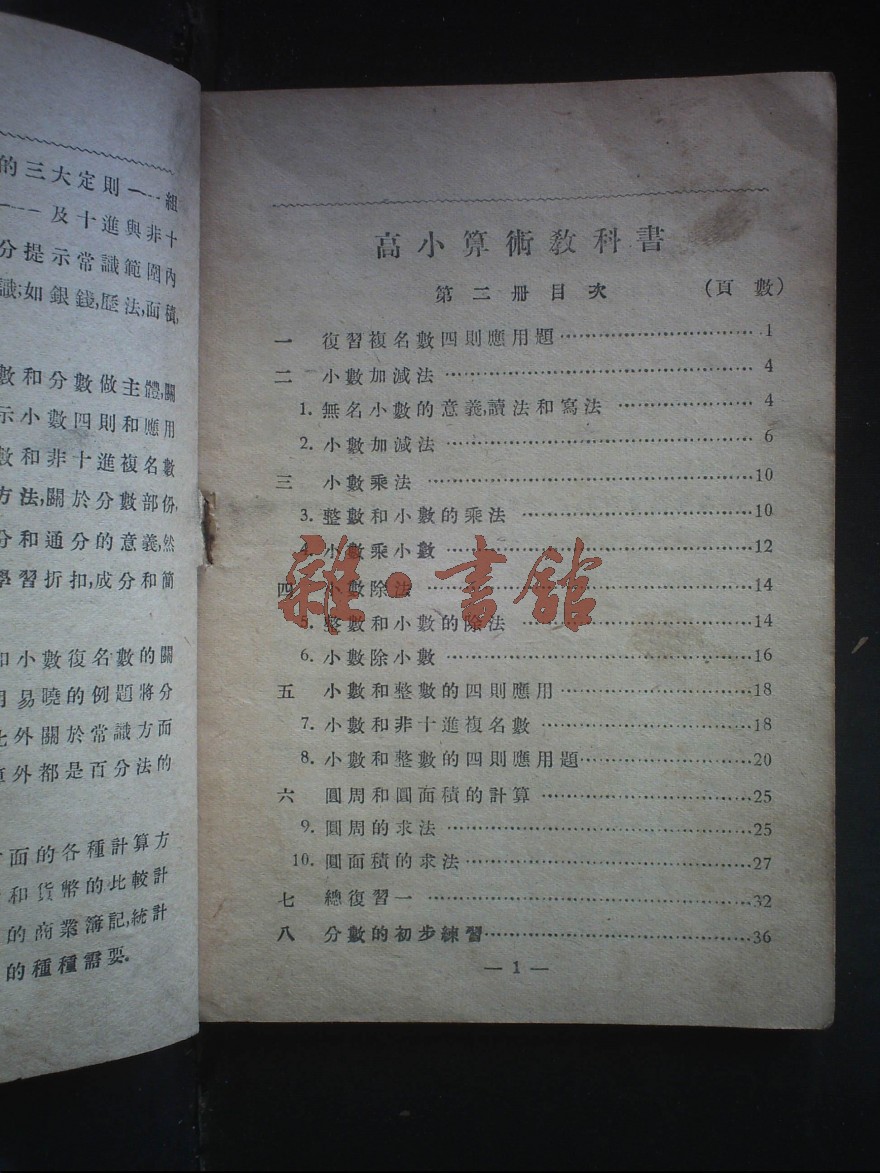 的三大定則一—組
——及十進與非十
分提示常識範圍內
識;如銀錢,歷法,面積,
數和分數做主體,關
示小數四則和應用
數和非十進複名數
方法,關於分數部份,
分和通分的意義,然
學習折扣,成分和簡
和小數復名數的關
用易曉的例題將分
此外關於常識方面
外都是百分法的
面的各種計算方
和貨幣的比較計
的商業簿記,統計
的種種需要。
高小算術教科書
第二册目次 (頁數)
一 復習複名數四則應用題……1
二 小數加減法……4
1. 無名小數的意義,讀法和寫法……4
2. 小數加減法……6
三 小數乘法……10
3. 整數和小數的乘法……10
4. 小數乘小數……12
四 小數除法……14
5. 整數和小數的除法……14
6. 小數除小數……16
五 小數和整數的四則應用……18
7. 小數和非十進複名數……18
8. 小數和整數的四則應用題……20
六 圓周和圓面積的計算……25
9. 圓周的求法……25
10. 圓面積的求法……27
七 總復習一……32
八 分數的初步練習……36
— 1 —
雜·書館